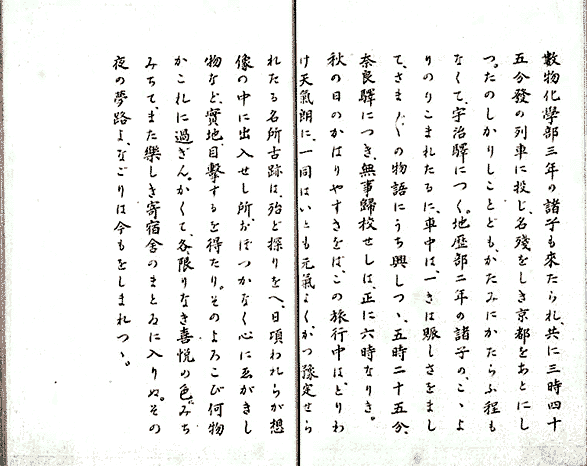 數物化學部三年の諸子も來たられ、共に三時四十
五分發の列車に投じ、名殘をしき京都をあとにし
つ。たのしかりしことども、かたみにかたらふ程も
なくて、宇治驛につく。地歷部二年の諸子の、こゝよ
りのりこまれたるに、車中は、一きは賑しさをまし
て、さま〲の物語にうち興しつゝ、五時二十五分、
奈良驛につき、無事歸校せしは、正に六時なりき。
秋の日のかはりやすきをば、この旅行中は、とりわ
け天氣朗に、一同はいとも元氣よく、かつ豫定せら
れたる名所古跡は、殆ど探りをへ、日頃われらが想
像の中に出入せし所、おぼつかなく心にゑがきし
物など、實地目擊するを得たり。そのよろこび何物
かこれに過ぎん。かくて、各、限りなき喜悦の色にみち
みちて、また樂しき寄宿舍のまとゐに入りぬ。その
夜の夢路よ、なごりは今もをしまれつゝ。